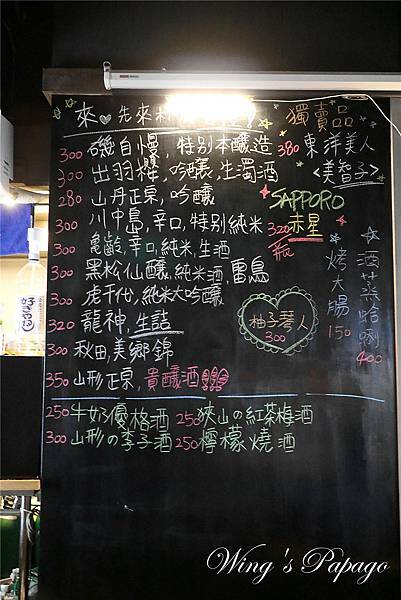 來♡先來杯
300 磯自慢,特別本釀造
300 出羽桜,吟釀,生濁酒
280 山丹正宗,吟釀
300 川中島,辛口,特別純米
300 亀齢,辛口,純米,生酒
300 黑松仙釀,純米酒,雷鳥
300 虎千代,純米大吟釀
320 龍神,生詰
300 秋田,美鄉錦
350 山形正宗,貴釀酒
250 牛奶優格酒 250 狹山の紅茶梅酒
300 山形の李子酒 250 檸檬燒酒
獨賣品
380 東洋美人
<美智子>
SAPPORO
320/瓶 赤星
烤大腸 150
酒蒸蛤蜊 400
柚子琴人
300
Wing's Papago